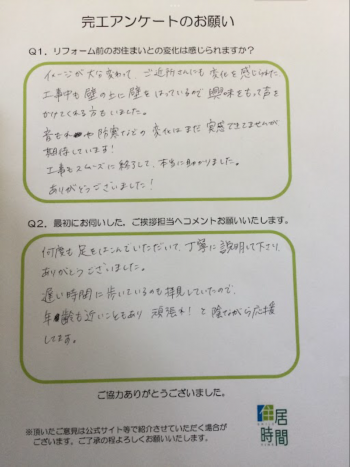 完工アンケートのお願い
Q1．リフォーム前のお住まいとの変化は感じられますか？
イメージが大分変わって、ご近所さんにも変化を感じられた
工事中も壁の上に壁をはっているので興味をもって声を
かけてくれる方もいました。
音もれや防寒などの変化はまだ実感できてませんが
期待しています！
工事もスムーズに終了して、本当に助かりました。
ありがとうございました！
Q2．最初にお伺いした、ご挨拶担当へコメントお願いいたします。
何度も足をはこんでいただいて、丁寧に説明して下さり、
ありがとうございました。
遅い時間に歩いているのも拝見していたので、
年齢も近いこともあり 頑張れ！と陰ながら応援
してます。
ご協力ありがとうございました。
※頂いたご意見は公式サイト等で紹介させていただく場合が
ございます。ご了承の程よろしくお願いいたします。
住居
時間